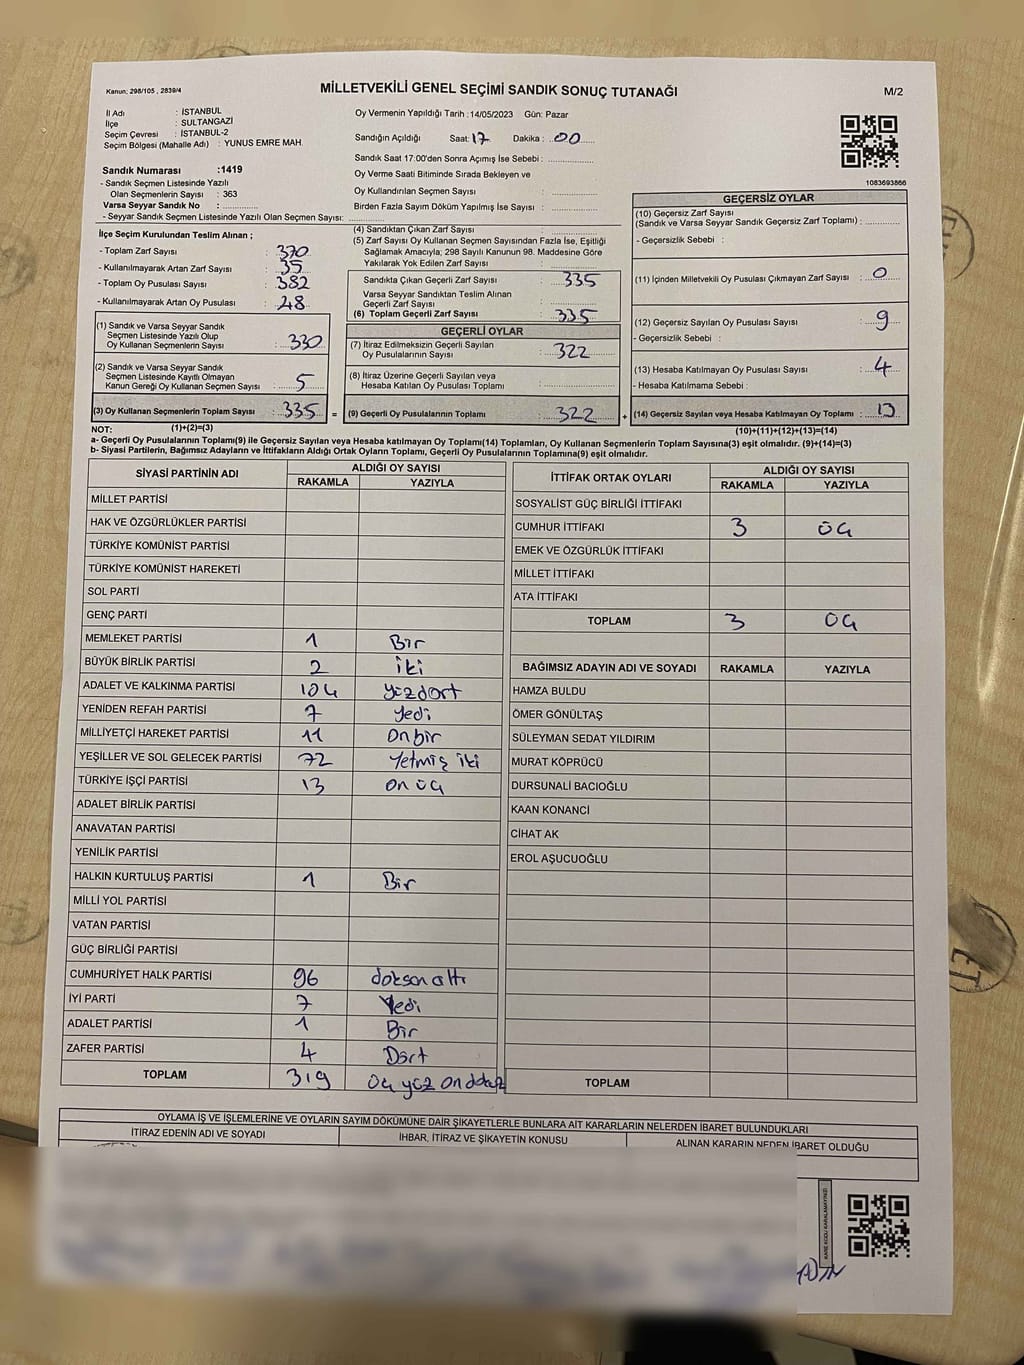 Kanun; 298/105 , 2839/4
MİLLETVEKİLİ GENEL SEÇİMİ SANDIK SONUÇ TUTANAĞI
M/2
İl Adı : İSTANBUL
İlçe : SULTANGAZİ
Seçim Çevresi : İSTANBUL-2
Seçim Bölgesi (Mahalle Adı) : YUNUS EMRE MAH.
Sandık Numarası :1419
- Sandık Seçmen Listesinde Yazılı
Olan Seçmenlerin Sayısı : 363
Varsa Seyyar Sandık No :
- Seyyar Sandık Seçmen Listesinde Yazılı Olan Seçmen Sayısı:
Oy Vermenin Yapıldığı Tarih :14/05/2023 Gün: Pazar
Sandığın Açıldığı Saat: 17 Dakika : 00
Sandık Saat 17:00'den Sonra Açımış İse Sebebi :
Oy Verme Saati Bitiminde Sırada Bekleyen ve
Oy Kullandırılan Seçmen Sayısı :
Birden Fazla Sayım Döküm Yapılmış İse Sayısı :
1083693866
İlçe Seçim Kurulundan Teslim Alınan ;
- Toplam Zarf Sayısı : 370
- Kullanılmayarak Artan Zarf Sayısı : 35
- Toplam Oy Pusulası Sayısı : 382
- Kullanılmayarak Artan Oy Pusulası : 48
(1) Sandık ve Varsa Seyyar Sandık
Seçmen Listesinde Yazılı Olup
Oy Kullanan Seçmenlerin Sayısı : 330
(2) Sandık ve Varsa Seyyar Sandık
Seçmen Listesinde Kayıtlı Olmayan
Kanun Gereği Oy Kullanan Seçmen Sayısı : 5
(3) Oy Kullanan Seçmenlerin Toplam Sayısı : 335 =
(1)+(2)=(3)
(4) Sandıktan Çıkan Zarf Sayısı :
(5) Zarf Sayısı Oy Kullanan Seçmen Sayısından Fazla İse, Eşitliği
Sağlamak Amacıyla; 298 Sayılı Kanunun 98. Maddesine Göre
Yakılarak Yok Edilen Zarf Sayısı :
Sandıkta Çıkan Geçerli Zarf Sayısı : 335
Varsa Seyyar Sandıktan Teslim Alınan
Geçerli Zarf Sayısı :
(6) Toplam Geçerli Zarf Sayısı : 335
GEÇERLİ OYLAR
(7) İtiraz Edilmeksizin Geçerli Sayılan
Oy Pusulalarının Sayısı : 322
(8) İtiraz Üzerine Geçerli Sayılan veya
Hesaba Katılan Oy Pusulası Toplamı :
(9) Geçerli Oy Pusulalarının Toplamı : 322 +
GEÇERSİZ OYLAR
(10) Geçersiz Zarf Sayısı
(Sandık ve Varsa Seyyar Sandık Geçersiz Zarf Toplamı) :
- Geçersizlik Sebebi :
(11) İçinden Milletvekili Oy Pusulası Çıkmayan Zarf Sayısı : 0
(12) Geçersiz Sayılan Oy Pusulası Sayısı : 9
- Geçersizlik Sebebi :
(13) Hesaba Katılmayan Oy Pusulası Sayısı : 4
- Hesaba Katılmama Sebebi :
(14) Geçersiz Sayılan veya Hesaba Katılmayan Oy Toplamı : 13
(10)+(11)+(12)+(13)=(14)
NOT:
a- Geçerli Oy Pusulalarının Toplamı(9) ile Geçersiz Sayılan veya Hesaba katılmayan Oy Toplamı(14) Toplamları, Oy Kullanan Seçmenlerin Toplam Sayısına(3) eşit olmalıdır. (9)+(14)=(3)
b- Siyasi Partilerin, Bağımsız Adayların ve İttifakların Aldığı Ortak Oyların Toplamı, Geçerli Oy Pusulalarının Toplamına(9) eşit olmalıdır.
SİYASİ PARTİNİN ADI ALDIĞI OY SAYISI
RAKAMLA YAZIYLA
MİLLET PARTİSİ
HAK VE ÖZGÜRLÜKLER PARTİSİ
TÜRKİYE KOMÜNİST PARTİSİ
TÜRKİYE KOMÜNİST HAREKETİ
SOL PARTİ
GENÇ PARTİ
MEMLEKET PARTİSİ 1 Bir
BÜYÜK BİRLİK PARTİSİ 2 iki
ADALET VE KALKINMA PARTİSİ 104 yüzdört
YENİDEN REFAH PARTİSİ 7 yedi
MİLLİYETÇİ HAREKET PARTİSİ 11 onbir
YEŞİLLER VE SOL GELECEK PARTİSİ 72 Yetmiş iki
TÜRKİYE İŞÇİ PARTİSİ 13 on üç
ADALET BİRLİK PARTİSİ
ANAVATAN PARTİSİ
YENİLİK PARTİSİ
HALKIN KURTULUŞ PARTİSİ 1 Bir
MİLLİ YOL PARTİSİ
VATAN PARTİSİ
GÜÇ BİRLİĞİ PARTİSİ
CUMHURİYET HALK PARTİSİ 96 doksan altı
İYİ PARTİ 7 Yedi
ADALET PARTİSİ 1 Bir
ZAFER PARTİSİ 4 Dört
TOPLAM 319 üç yüz on dokuz
İTTİFAK ORTAK OYLARI ALDIĞI OY SAYISI
RAKAMLA YAZIYLA
SOSYALİST GÜÇ BİRLİĞİ İTTİFAKI
CUMHUR İTTİFAKI 3 üç
EMEK VE ÖZGÜRLÜK İTTİFAKI
MİLLET İTTİFAKI
ATA İTTİFAKI
TOPLAM 3 üç
BAĞIMSIZ ADAYIN ADI VE SOYADI RAKAMLA YAZIYLA
HAMZA BULDU
ÖMER GÖNÜLTAŞ
SÜLEYMAN SEDAT YILDIRIM
MURAT KÖPRÜCÜ
DURSUNALİ BACIOĞLU
KAAN KONANCİ
CİHAT AK
EROL AŞUCUOĞLU
TOPLAM
OYLAMA İŞ VE İŞLEMLERİNE VE OYLARIN SAYIM DÖKÜMÜNE DAİR ŞİKAYETLERLE BUNLARA AİT KARARLARIN NELERDEN İBARET BULUNDUKLARI
İTİRAZ EDENİN ADI VE SOYADI İHBAR, İTİRAZ VE ŞİKAYETİN KONUSU ALINAN KARARIN NEDEN İBARET OLDUĞU
KARE KODU KARALAMAYINIZ!